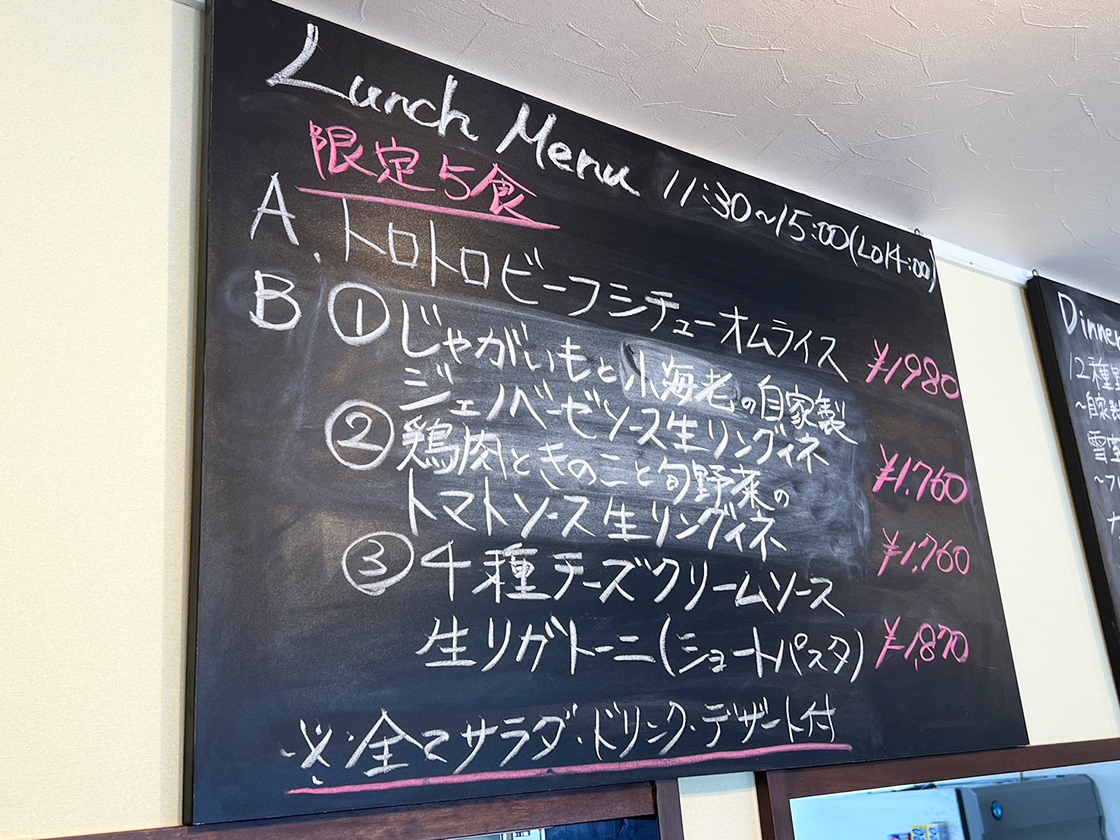 Lunch Menu 11:30~15:00(LO14:00)
限定5食
A. トロトロビーフシチューオムライス ¥1980
B ①じゃがいもと小海老の自家製
ジェノベーゼソース生リングィネ ¥1,760
②鶏肉ときのこと旬野菜の
トマトソース生リングィネ ¥1,760
③4種チーズクリームソース
生リガトーニ(ショートパスタ) ¥1,870
※全てサラダ・ドリンク・デザート付
Dinner
12種
~自家製